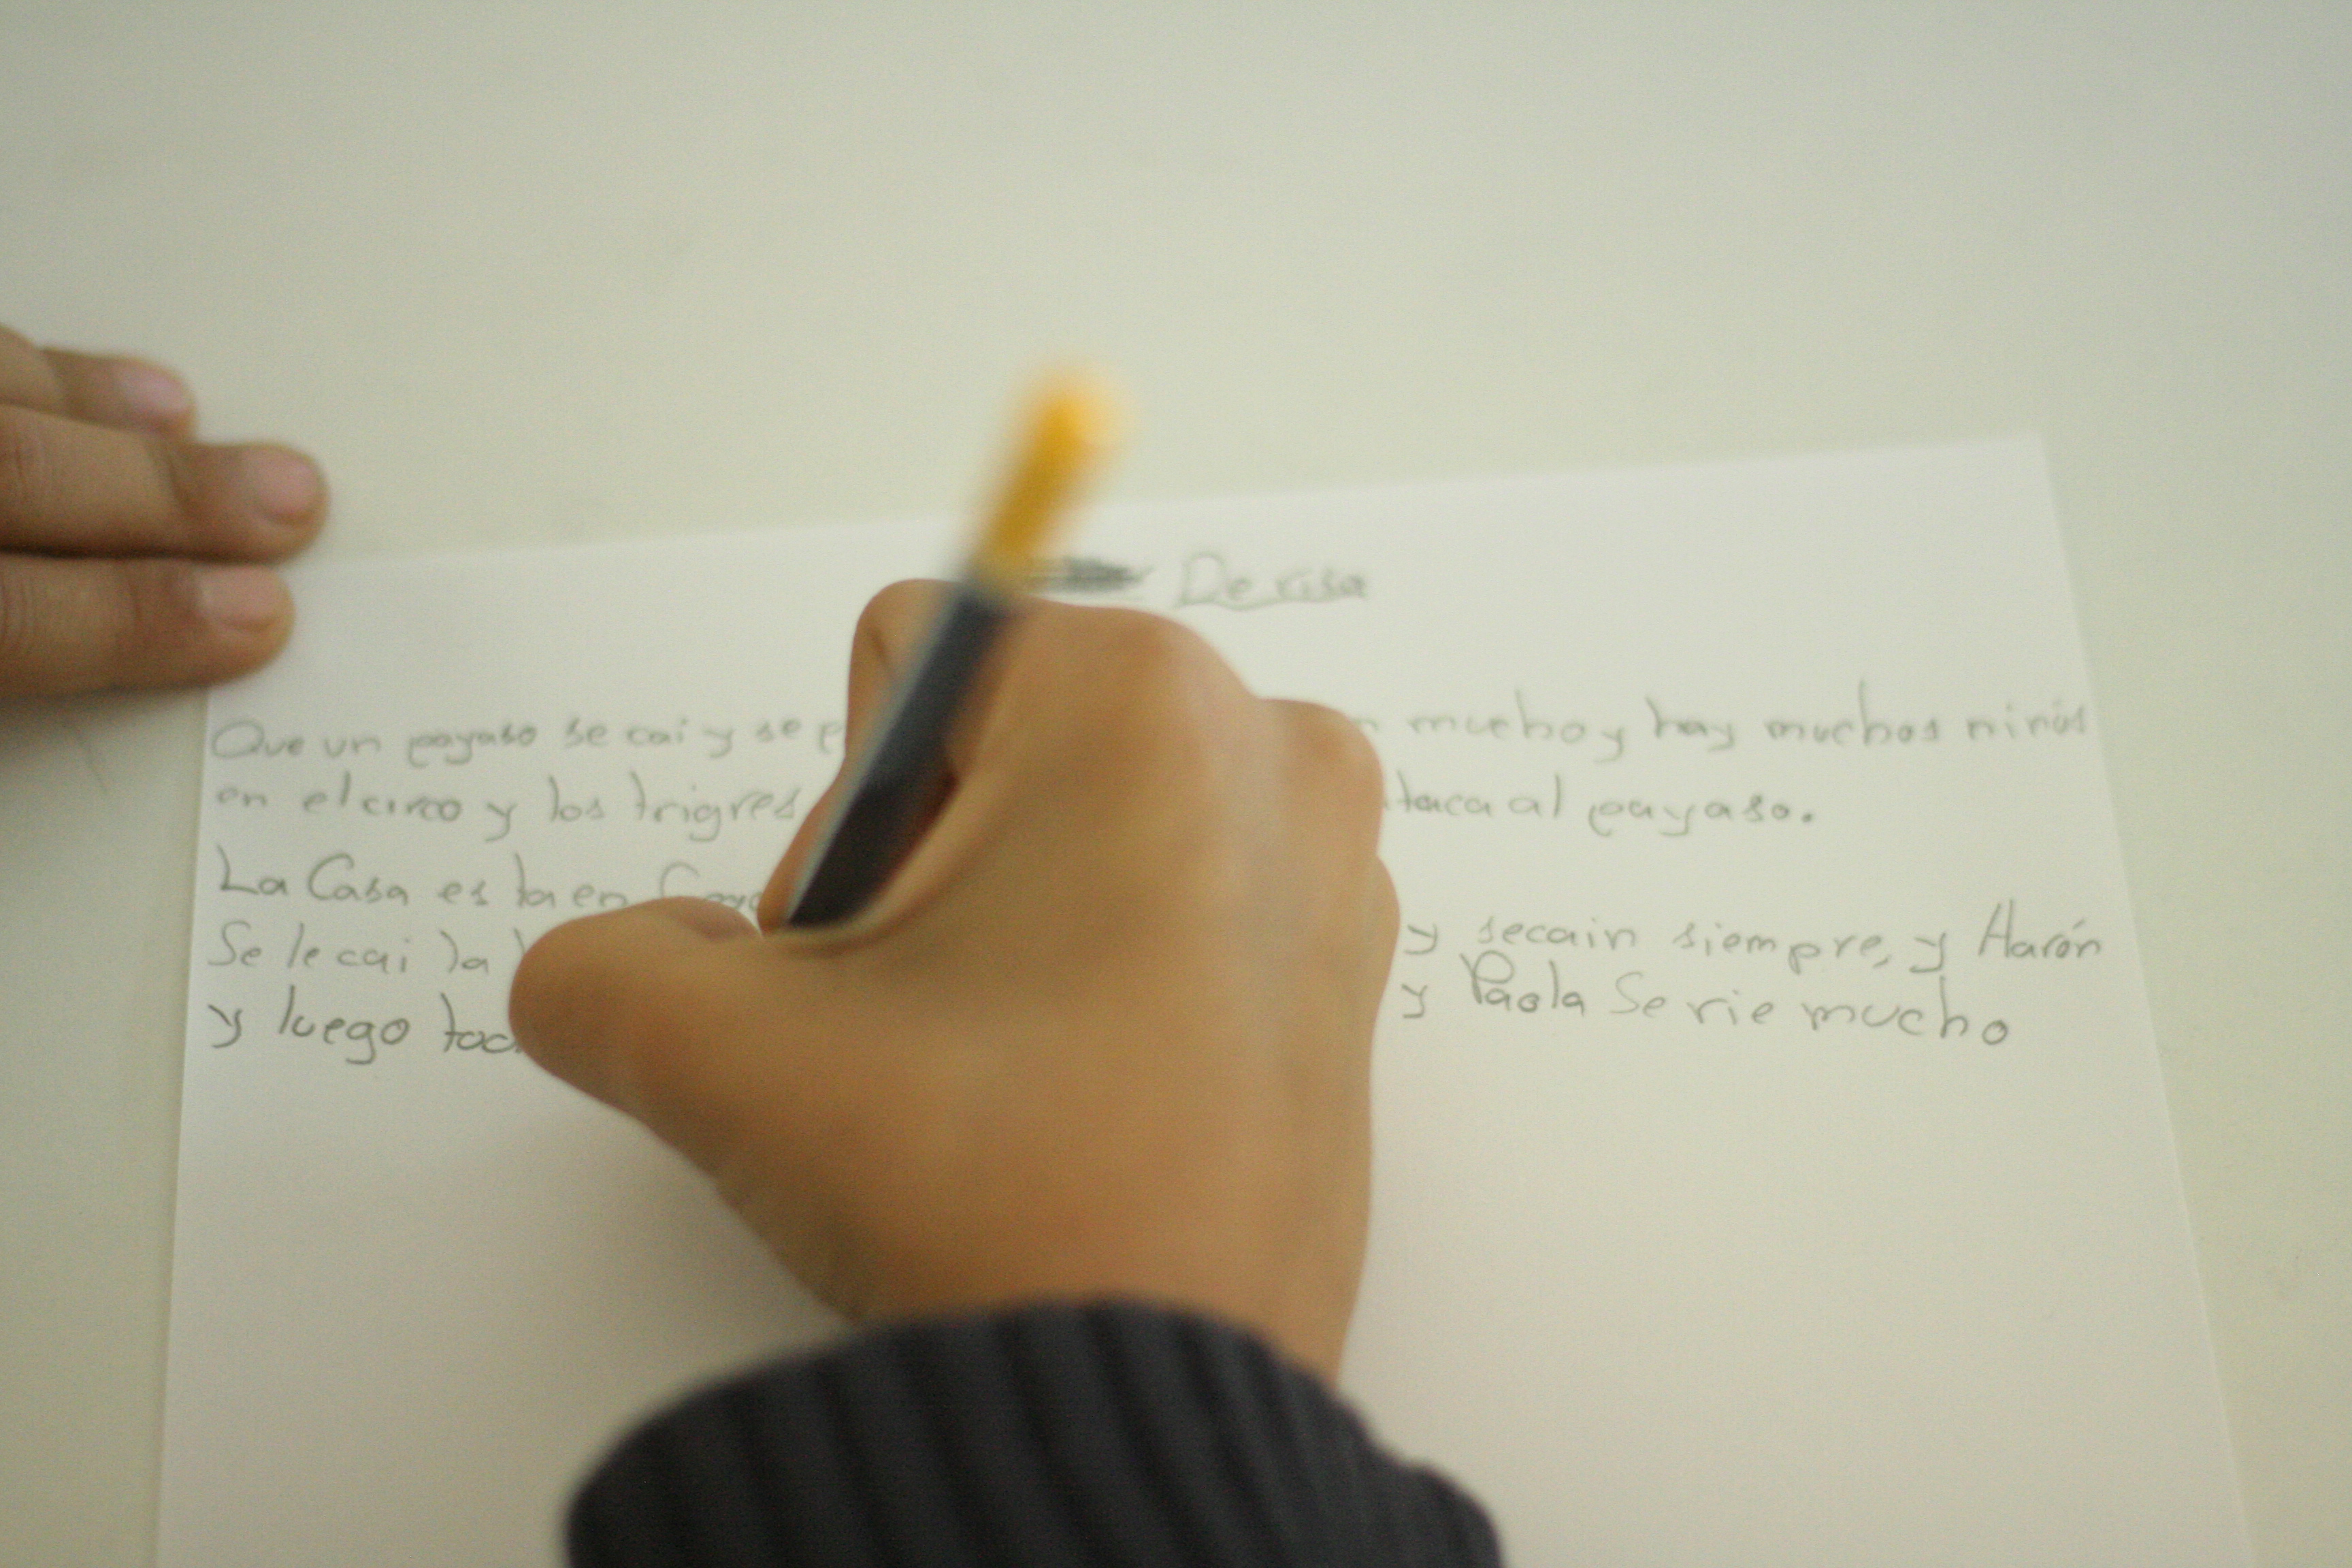 De risa
Que un payaso se cai y se mucho y hay muchos niños
en el circo y los trigres al payaso.
La Casa es ta en
Se le cai la y secain siempre, y Harón
y luego y Paola Se rie mucho